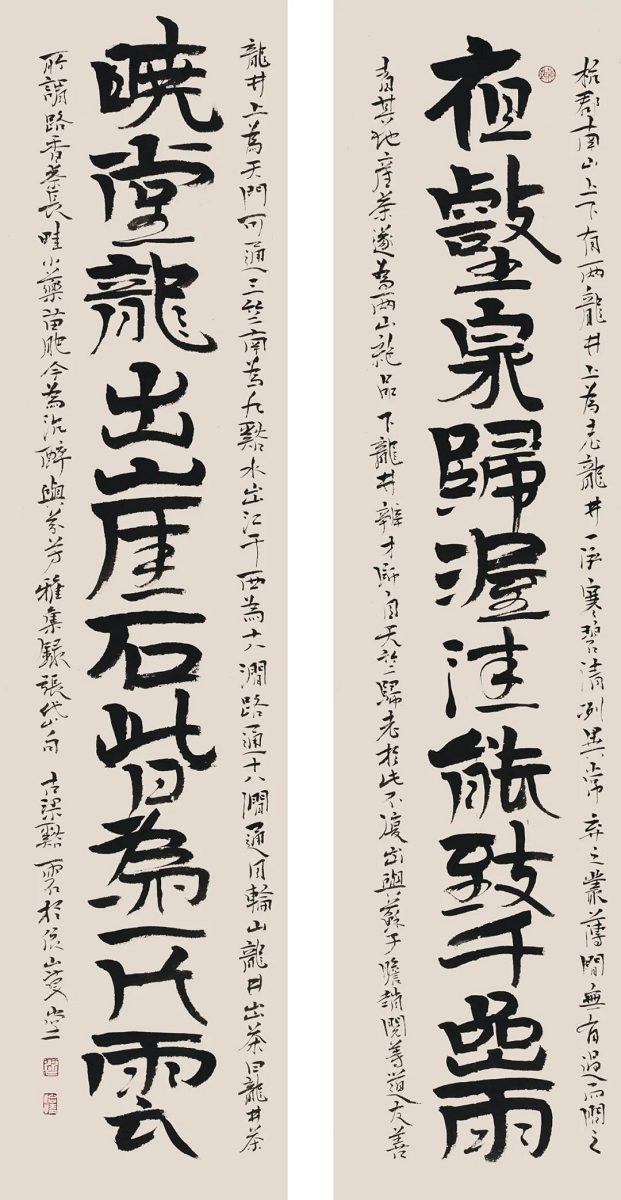 杭郡南山上下有兩龍井上為老龍井一泓寒碧清冽異常棄之叢薄間無有過而問之
夜壑泉歸渥洼能致千嵒雨
者其地產茶遂為兩山絕品下龍井辯才師自天竺歸老於此不復出與蘇子瞻趙閱等道友善
龍井上為天門可通三竺南為九谿水出江干西為十八澗路通十八澗通月輪山龍井出茶曰龍井茶
曉堂龍出崖石皆為一片雲
所謂路香茶長畦小藥苗肥今為沉醉與芬芳雅集錄張岱句 古梁谿於山堂